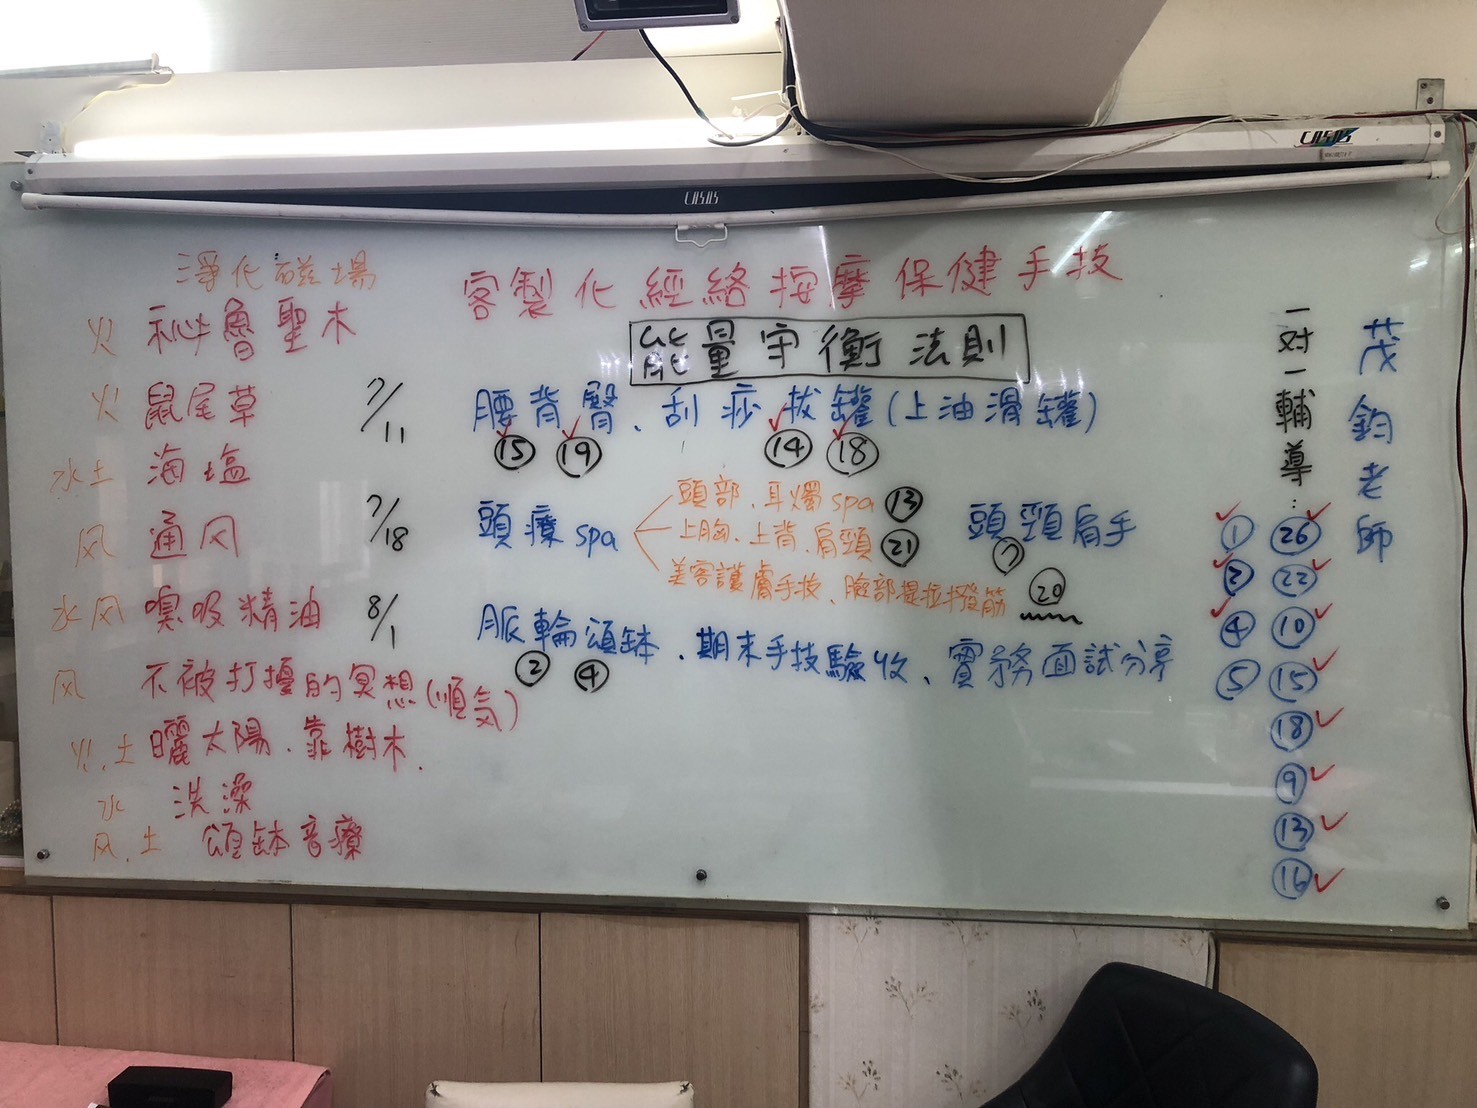 CASOS
CASOS
淨化磁場
火 秘魯聖木
火 鼠尾草
水土 海塩
风 通风
水风 嗅吸精油
风 不被打擾的冥想(順気)
火.土 曬太陽.靠樹木.
水 洗澡
风.土 頌缽音療
客製化經絡按摩保健手技
能量守衡法則
7/11 腰背臀、刮痧拔罐(上油滑罐)
⑮ ⑲ ⑭ ⑱
7/18 頭療spa
頭部、耳燭spa ⑬
上胸、上背、肩頸 ㉑
美容護膚手技、臉部提拉撥筋 ⑳
頭頸肩手
⑦
8/1 脈輪頌缽、期末手技驗收、實務面試分享
② ④
一对一輔導:
① ㉖
② ㉒
④ ⑩
⑤ ⑮
⑱
⑨
⑬
⑯
茂鈞老師